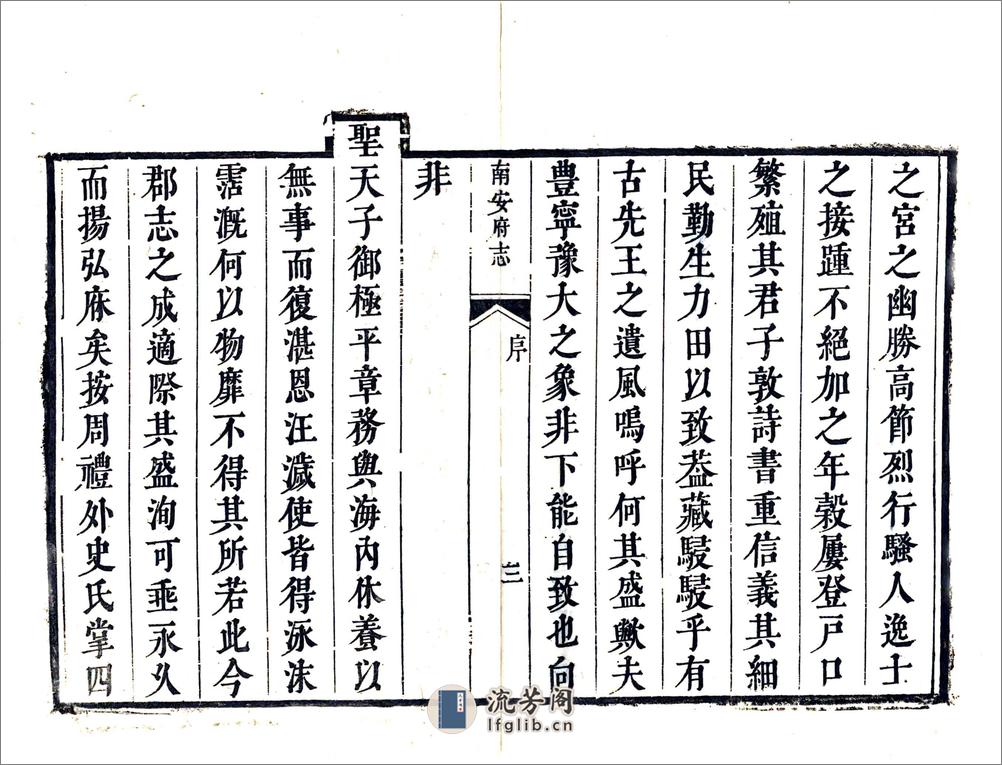 之宮之幽勝高節烈行騷人逸士
之接踵不絕加之年穀屢登戸口
繁殖其君子敦詩書重信義其細
民勤生力田以致葢藏駸駸乎有
古先王之遺風嗚呼何其盛歟夫
豊寧豫大之象非下能自致也向
南安府志
序
三
非
聖天子御極平章務與海內休養以
無事而復湛恩汪濊使皆得泳沫
霑溉何以物靡不得其所若此今
郡志之成適際其盛洵可垂永久
而揚弘庥矣按周禮外史氏掌四
流芳阁
lfglib.cn